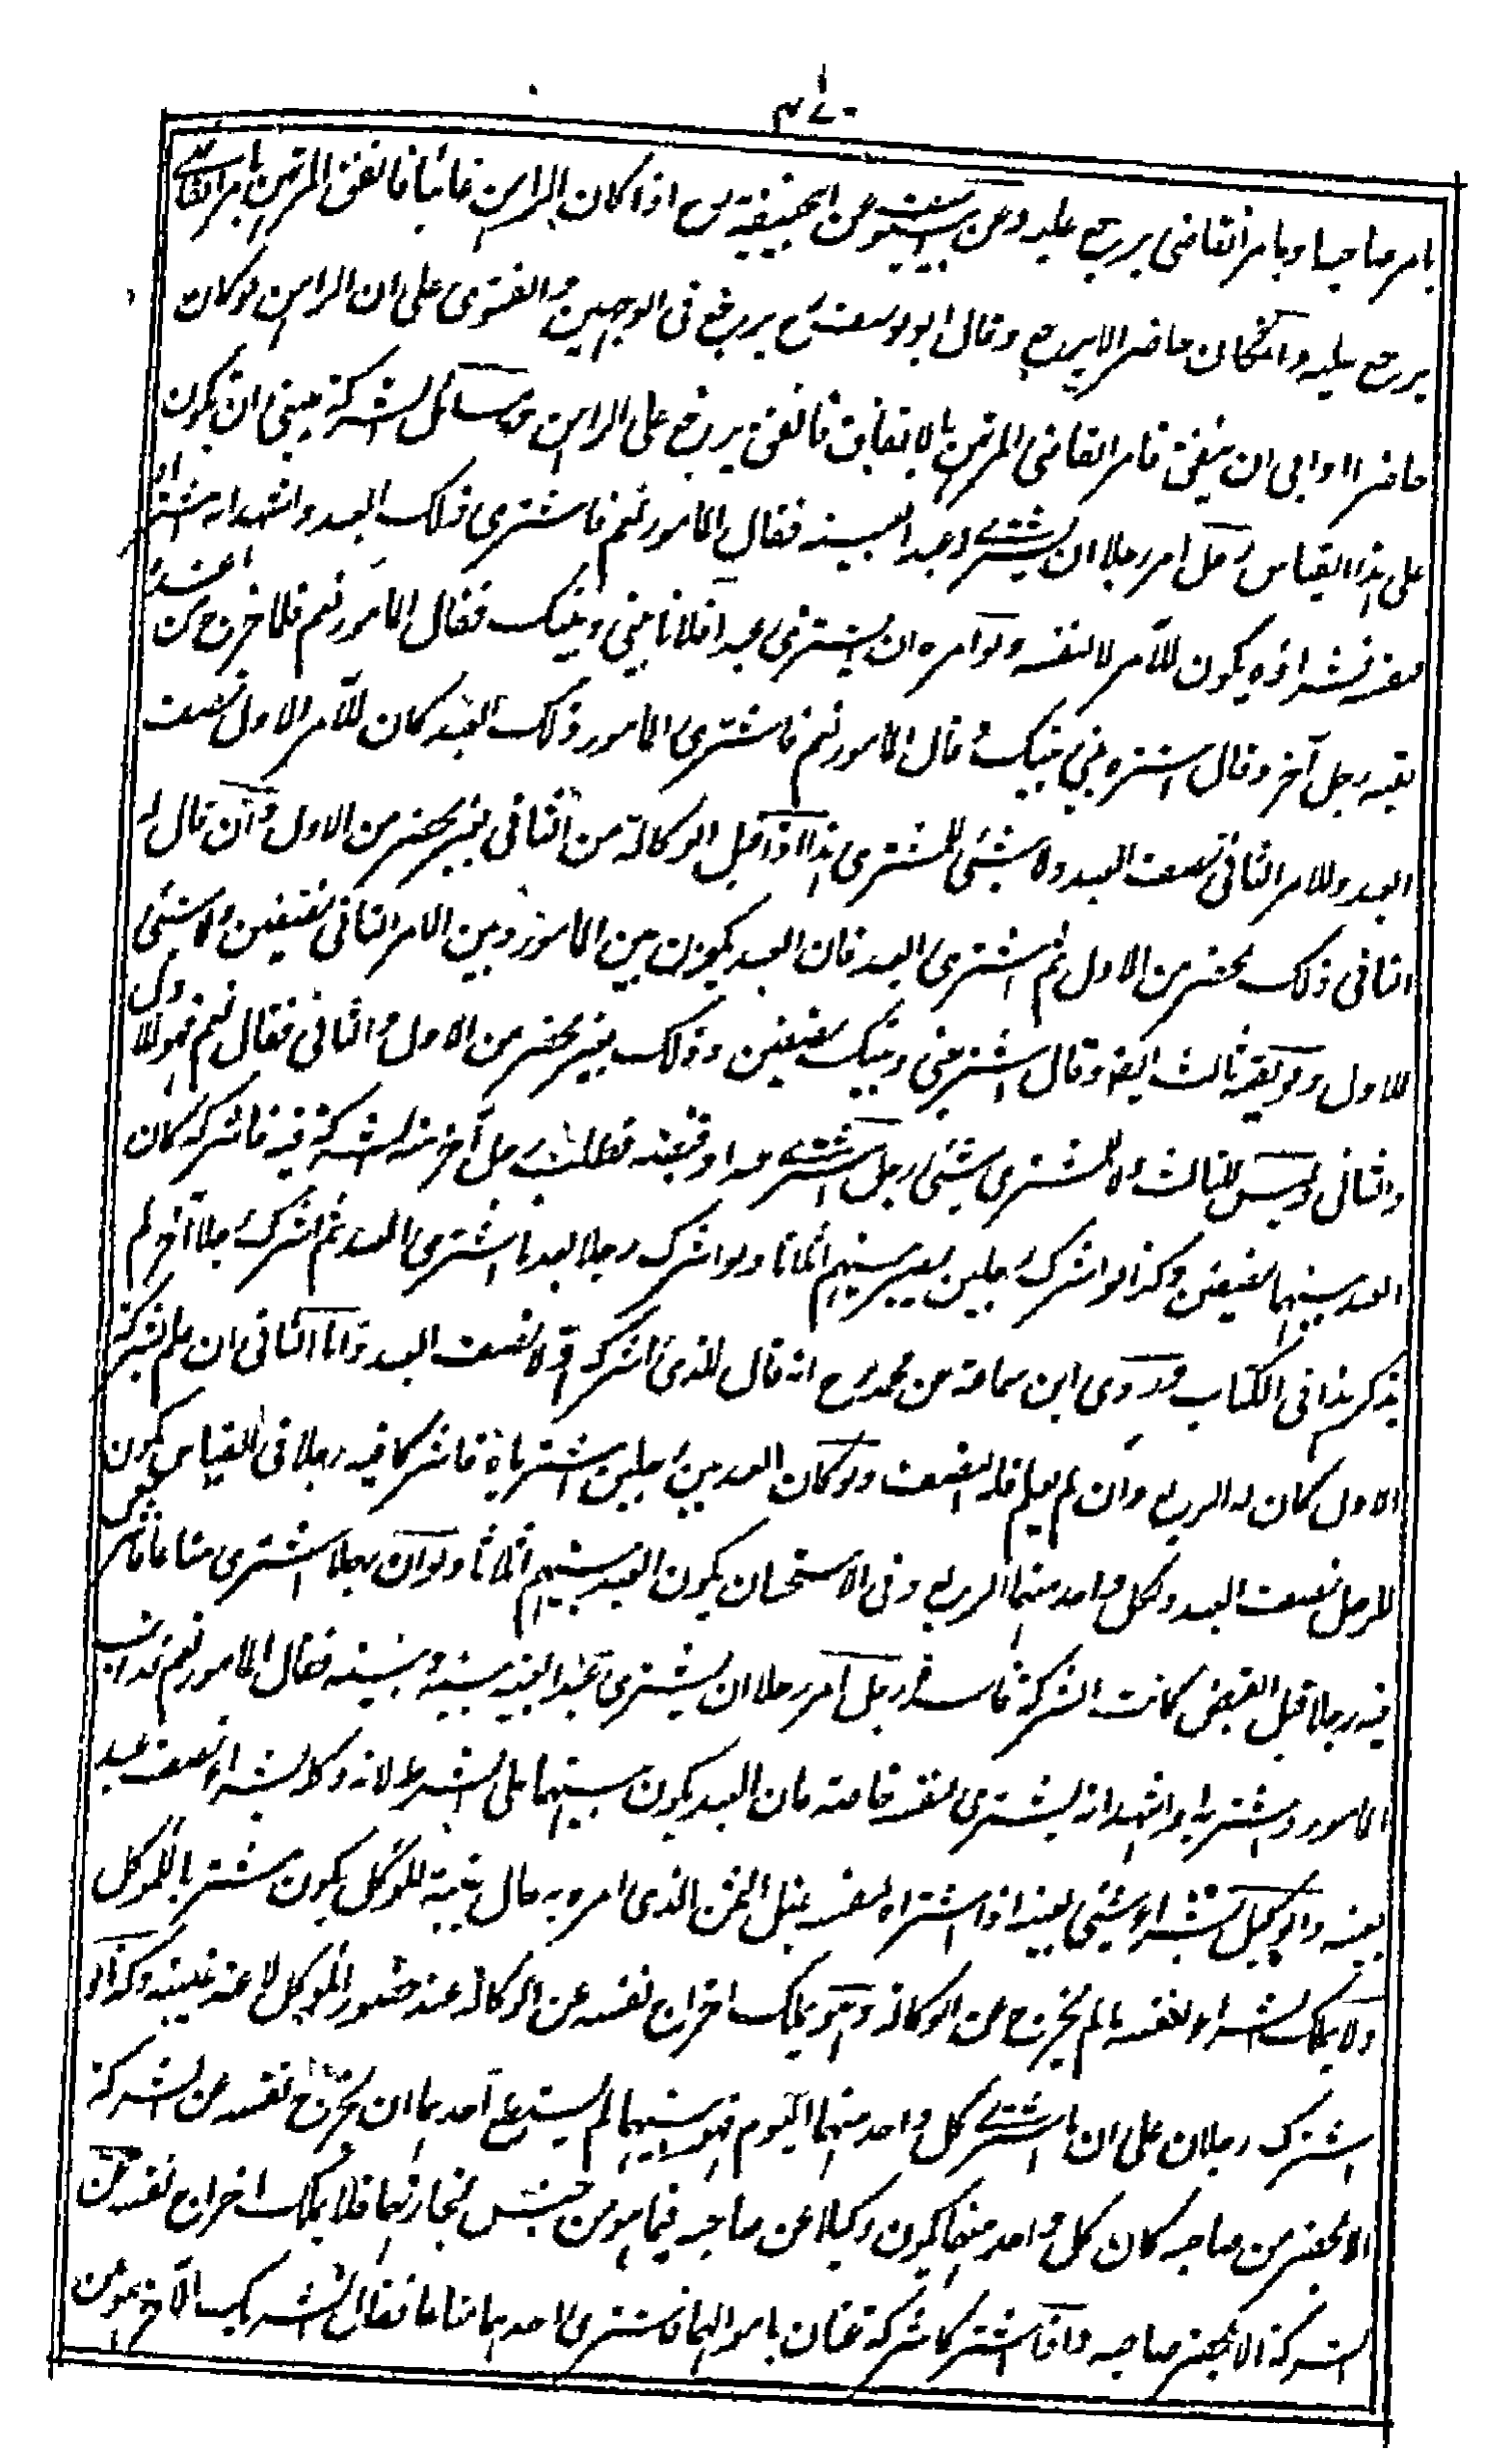 ٤٧٠
بامر صاحبها وبامر القاضي يرجع عليه وعن ابي يوسف عن ابيحنيفة رح اذا كان الراهن غائبا فانفق المرتهن بامر القاضي
يرجع عليه وانكان حاضرا لا يرجع وقال ابو يوسف رح يرجع في الوجهين والفتوى على ان الراهن لوكان
حاضرا وابى ان ينفق فامر القاضي المرتهن بالانفاق فانفق يرجع على الراهن ومسائل الشركة ينبغي ان تكون
على هذا القياس رجل امر رجلا ان يشتري عبدا بعينه فقال المامور نعم فاشترى ذلك العبد واشهد انه اشتراه
لنفسه فشراؤه يكون للآمر لا لنفسه ولو امره ان يشتري عبد افلانا بيني وبينك فقال المامور نعم فلما خرج من عنده
لقيه رجل آخر وقال اشتره بيني وبينك وقال المامور نعم فاشترى المامور ذلك العبد كان للآمر الاول نصف
العبد وللامر الثاني نصف العبد ولا شئ للمشتري هذا اذا قبل الوكالة من الثاني بغير محضر من الاول وان قال له
الثاني ذلك بمحضر من الاول ثم اشترى العبد فان العبد يكون بين المامور وبين الامر الثاني نصفين ولا شئ
للاول ولو لقيه ثالث ايضا وقال اشتر بيني وبينك نصفين وذلك بغير محضر من الاول والثاني فقال نعم فهو للاول
والثاني وليس للثالث ولا للمشتري شئ رجل اشترى عبدا وقبضه فطلب رجل آخر منه الشركة فيه فاشركه كان
العبد بينهما نصفين وكذا لو اشرك رجلين يصير بينهم اثلاثا ولو اشرك رجلا بعد ما اشترى العبد ثم اشرك رجلا آخر لم
يذكر هذا في الكتاب وروى ابن سماعة عن محمد رح انه قال للذي اشركه اولا نصف العبد واما الثاني ان علم بشركة
الاول كان له الربع وان لم يعلم فله النصف ولو كان العبد بين رجلين اشترياه فاشركا فيه رجلا في القياس يكون
للرجل نصف العبد ولكل واحد منهما الربع وفي الاستحسان يكون العبد بينهم اثلاثا ولو ان رجلا اشترى متاعا فاشرك
فيه رجلا قبل القبض كانت الشركة فاسدة رجل امر رجلا ان يشتري عبدا بعينه بينه وبينه فقال المامور نعم فذهب
المامور واشتراه واشهد انه يشتري لنفسه خاصة فان العبد يكون بينهما على الشرط لانه وكله بشراء نصف عبد
بعينه والوكيل بشراء شئ بعينه اذا اشتراه لنفسه بمثل الثمن الذي امره به حال غيبة الموكل يكون مشتريا للموكل
ولا يملك الشراء لنفسه ما لم يخرج عن الوكالة وهو يملك اخراج نفسه عن الوكالة عند حضور الموكل لا عند غيبته وكذا لو
اشترك رجلان على ان ما اشترى كل واحد منهما اليوم فهو بينهما لم يستطع احدهما ان يخرج نفسه عن الشركة
الا بمحضر من صاحبه لان كل واحد منهما يكون وكيلا عن صاحبه فيما هو من جنس تجارتهما فلا يملك اخراج نفسه عن
الشركة الا بمحضر صاحبه واذا اشتركا شركة عنان باموالهما فاشترى احدهما متاعا فقال الشريك الآخر هو من